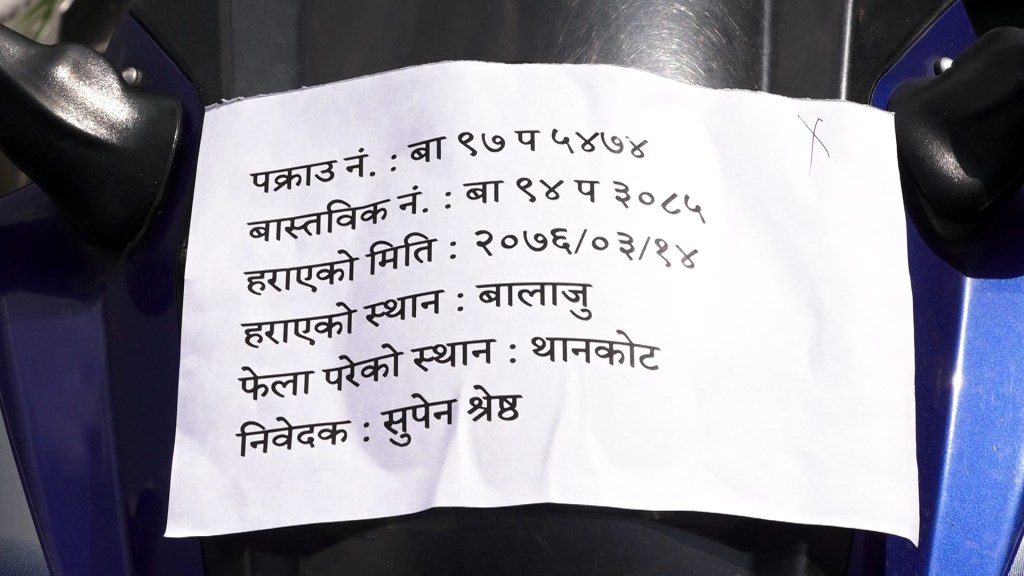 पक्राउ नं. : बा ९७ प ५४७४
बास्तविक नं. : बा ९४ प ३०८५
हराएको मिति : २०७६/०३/१४
हराएको स्थान : बालाजु
फेला परेको स्थान : थानकोट
निवेदक : सुपेन श्रेष्ठ